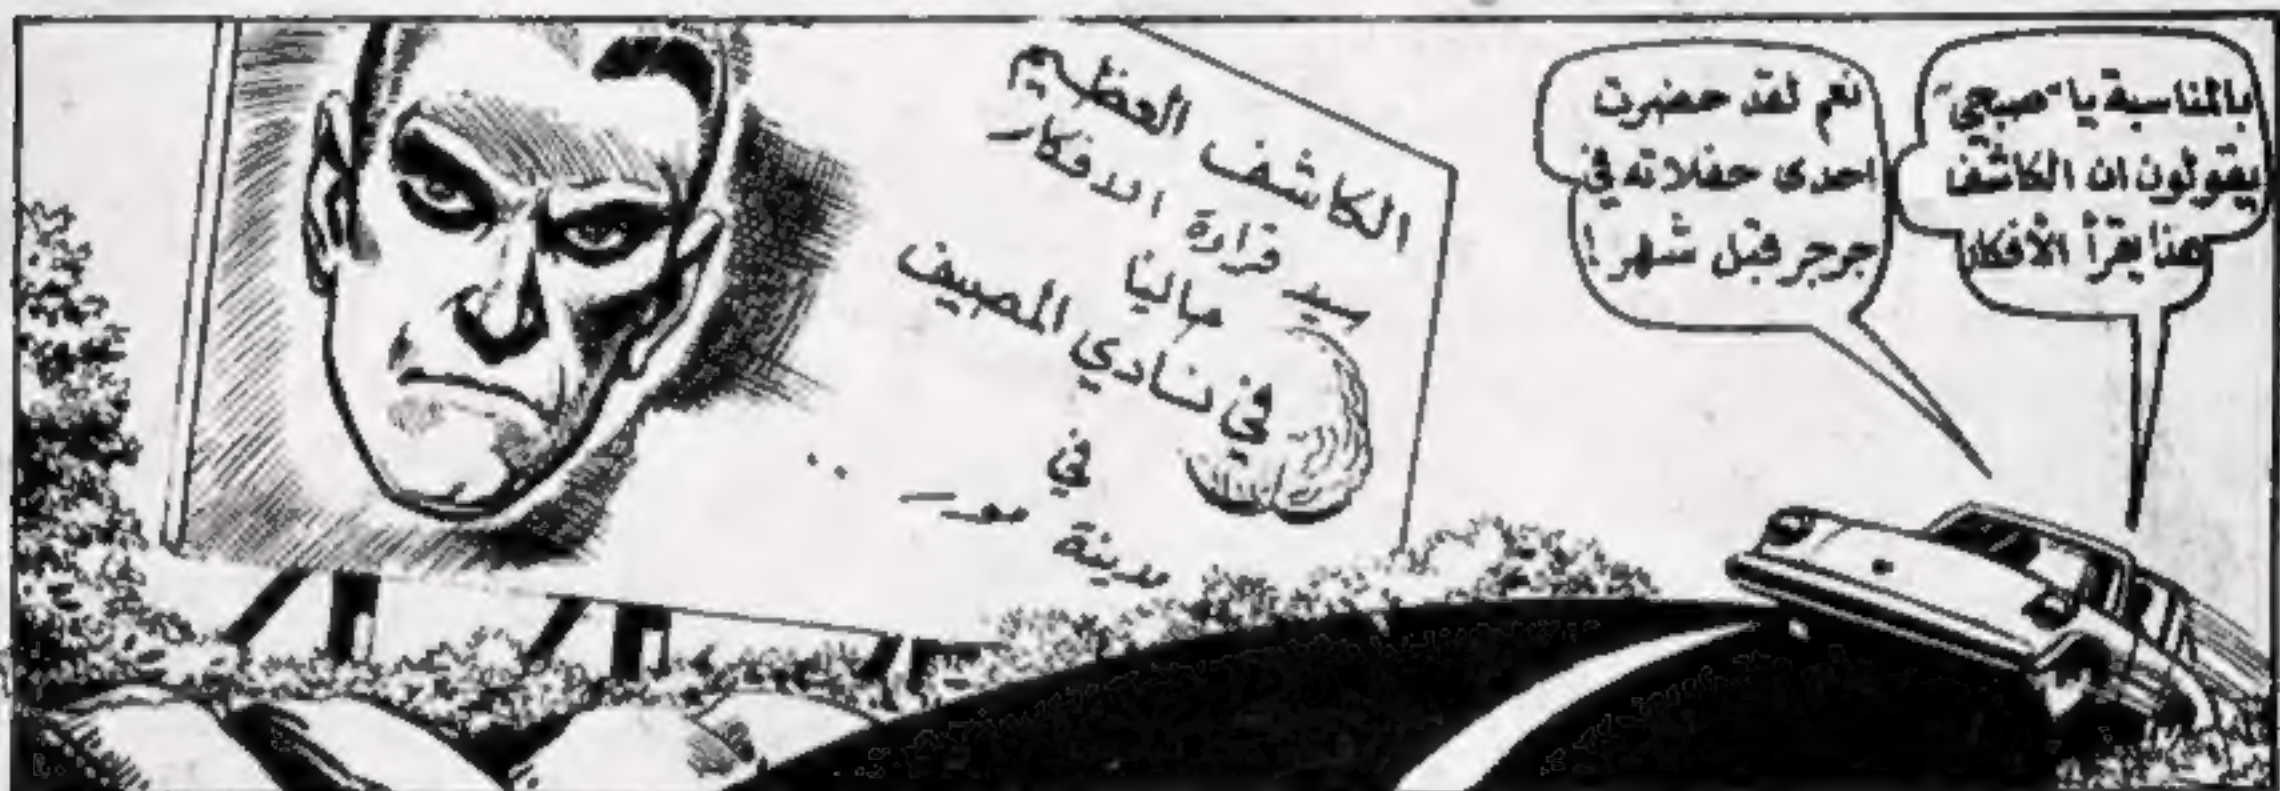 بالمناسبة يا "صبحي"
يقولون ان الكاشف
هنا يقرأ الأفكار
نعم لقد حضرت
احدى حفلاته في
جرجر قبل شهر!
الكاشف العظيم
سيد قراءة الافكار
حاليا
في نادي المصيف
في
مدينة